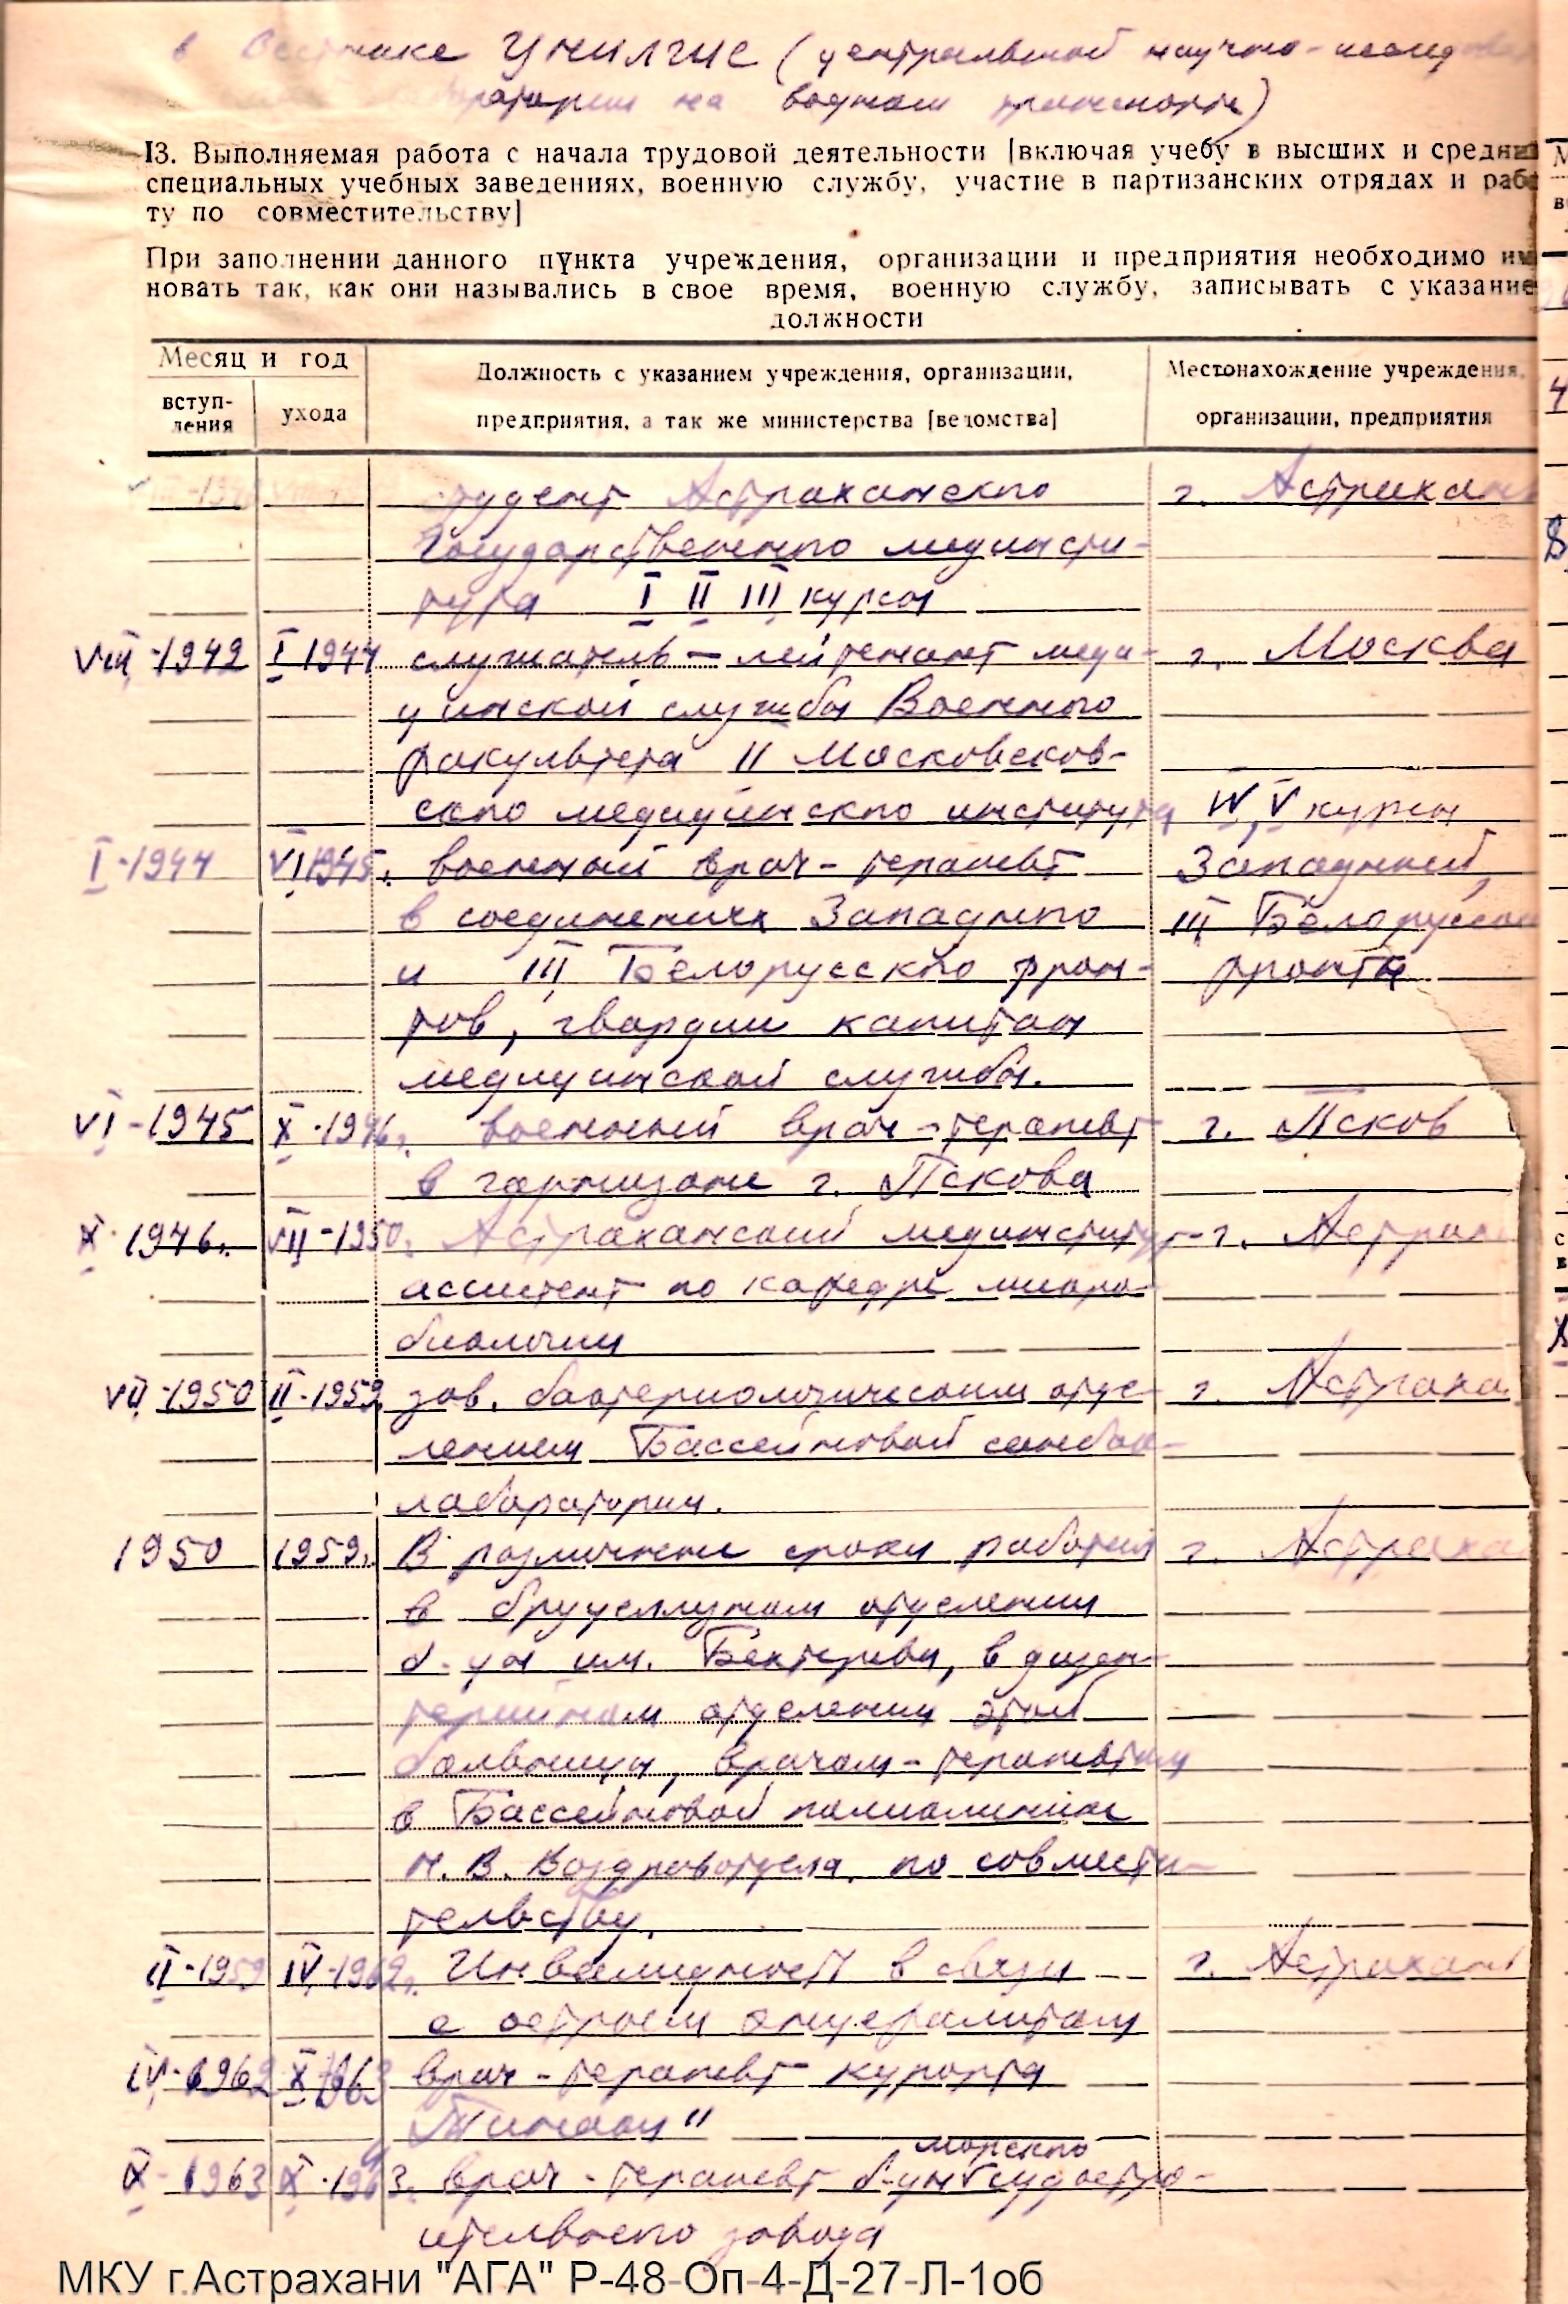 в Вестнике ЦНИЛГИС (центральной научно-исследов
лаборатории на водном транспорте)
13. Выполняемая работа с начала трудовой деятельности [включая учебу в высших и средни
специальных учебных заведениях, военную службу, участие в партизанских отрядах и рабо
ту по совместительству]
При заполнении данного пункта учреждения, организации и предприятия необходимо им
новать так, как они назывались в свое время, военную службу, записывать с указание
должности
Месяц и год
вступ-
ления
ухода
Должность с указанием учреждения, организации,
предприятия, а так же министерства [ведомства]
Местонахождение учреждения,
организации, предприятия
студент Астраханского г. Астрахань
Государственного мединсти-
тута I II III курсы
VIII-1942 I 1944 слушатель – лейтенант меди- г. Москва
цинской службы Военного
факультета II Московсков-
ского медицинского института IV, V курсы
I-1944 VI 1945г. военный врач-терапевт Западный,
в соединениях Западного III Белорусский
и III Белорусского фрон- фронты
тов, гвардии капитан
медицинской службы.
VI-1945 X-1946г. военный врач-терапевт г. Псков
в гарнизоне г. Пскова
X-1946г. VII-1950г. Астраханский мединститут- г. Астрахань
ассистент по кафедре микро-
биологии
VII-1950 II-1959 зав. бактериологическим отде- г. Астрахань
лением Бассейновой санбак-
лаборатории.
1950 1959г. В различные сроки работал г. Астрахань
в бруцеллезном отделении
б-цы им. Бехтерева, в дизен-
терийном отделении этой
больницы, врачом-терапевтом
в Бассейновой поликлинике
Н.В. Водздравотдела, по совмести-
тельству.
II-1959 IV-1962г. Инвалидность в связи г. Астрахань
с острым энцефалитом
IV-1962 X 1963 врач-терапевт курорта
„Тинаки"
X-1963 X-1963г. врач-терапевт б-цы морского судостро-
ительного завода
МКУ г.Астрахани "АГА" Р-48-Оп-4-Д-27-Л-1об